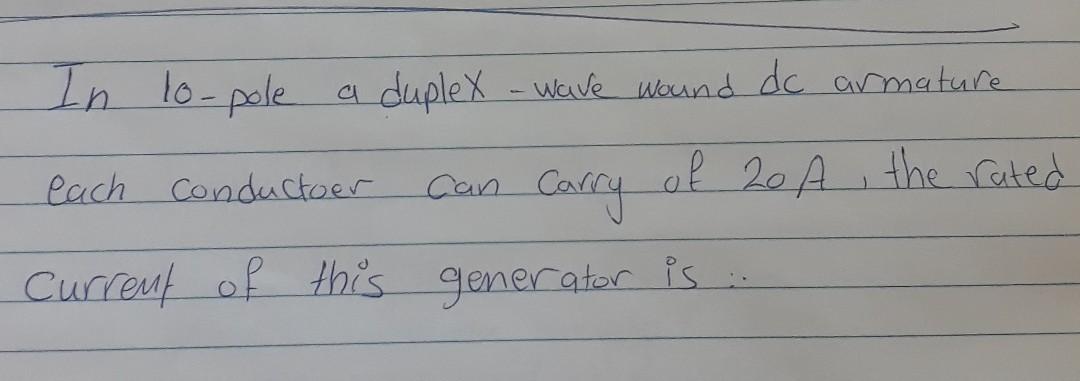 In 10-pole a duplex-wave wound dc armature
each conductoer can carry of 20A, the rated
current of this generator is :.